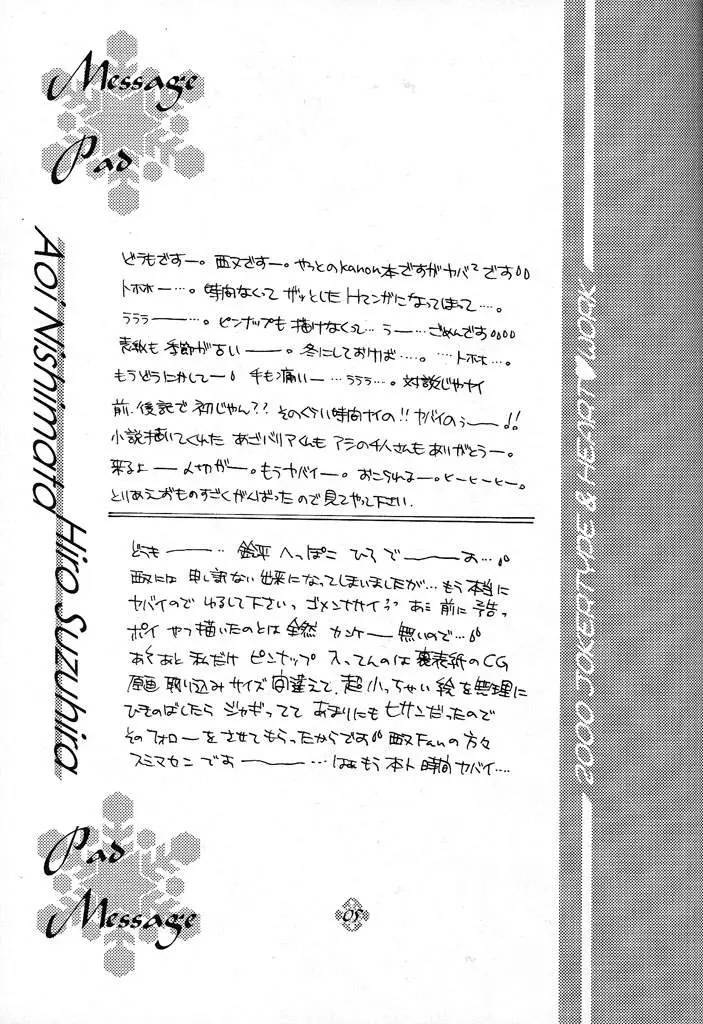 Message
Pad
Aoi Nishimata
Hiro Suzuhira
どうもですー。西又ですー。やっとのkanon本ですがヤバ²です
トホホー…。時間なくってザッとしたHマンガになってまって…。
ラララー――…。ピンナップも描けなくって… うー… ごめんです
表紙も季節が古い―――。冬にしておけば…。…トホホ…。
もうどうにかしてー。手も痛いー…ラララ…。対談じゃナイ
前.後記で初じゃん?? そのぐらい時間ナイの!! ヤバイのぅ――!!
小説描いてくれた あざバリアくんも アシの千人さんも ありがとうー。
来るよ――〆切がー。もうヤバイー。おこられるー。ヒーヒーヒー。
とりあえずものすごくがんばったので見てやって下さい.
どうも―――… 鈴平 へっぽこ ひろ で――――す…
西又には 申し訳ない出来になってしまいましたが…もう本当に
ヤバイので ゆるして下さいっ ゴメンナサイ 前に予告っ
ポイ やつ描いたのとは全然 カンケー 無いので…
あぐあと 私だけ ピンナップ 入ってんのは 裏表紙のCG
原画 取り込みサイズ 間違えて、超 小っちゃい 絵 を 無理に
ひきのばしたら ジャギってて あまりにも ヒサンだったので
そのフォローをさせてもらったからです 西又Fanの方々
スミマセン です――――…はぁもう 本ト 時間ヤバイ….
Pad
Message
05
2000 JOKERTYPE & HEART♥WORK